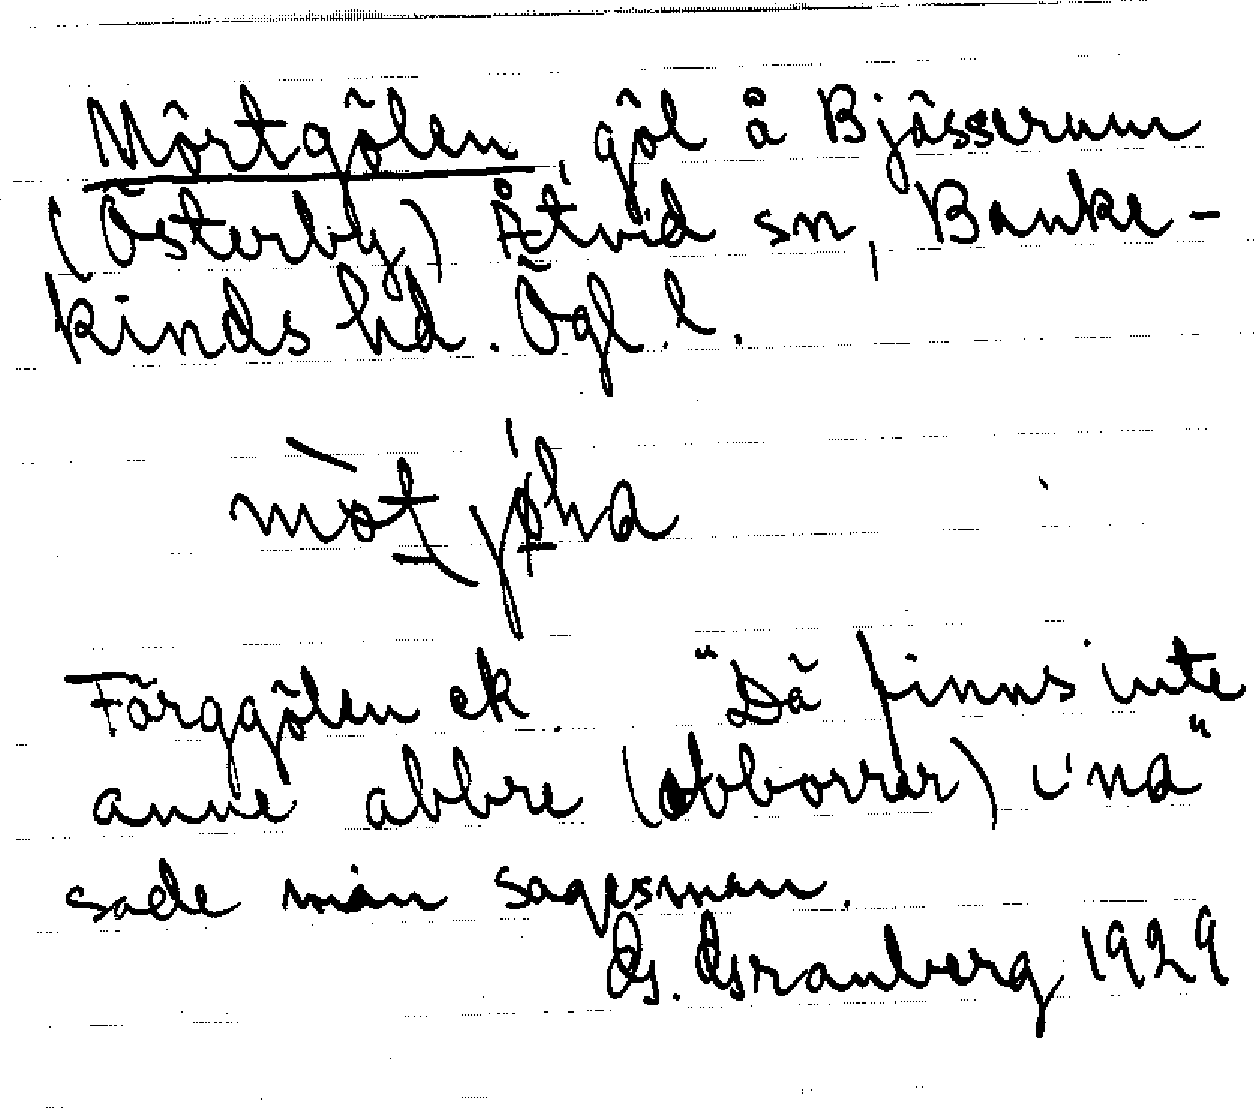 Mörtgölen, göl å Bjässerum
(Österby) Åtvid sn, Banke-
kinds hd. Ögl. l.
Färggölen ek. "Dä finns inte
anne abbre (abborrer) i na"
sade min sagesman.
G. Granberg 1929